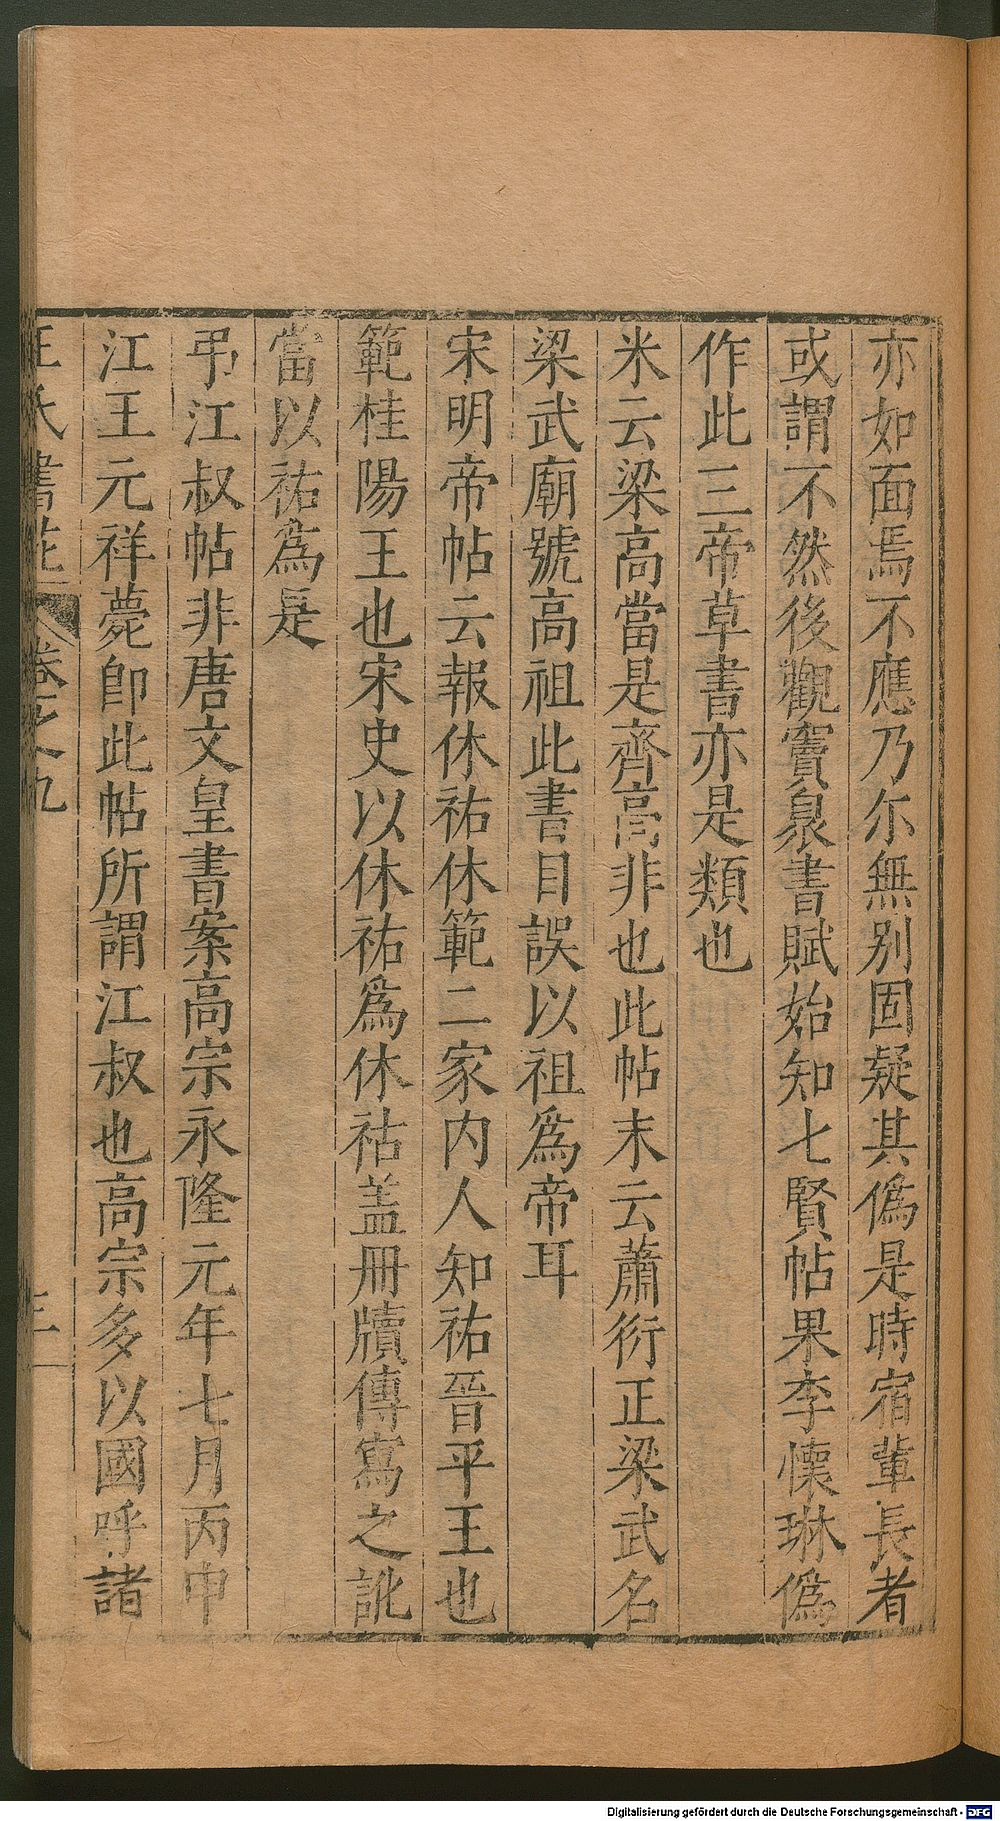 亦如面焉不應乃尓無别固疑其僞是時宿輩長者
或謂不然後觀竇泉書賦始知七賢帖果李懷琳僞
作此三帝草書亦是類也
米云梁高當是齊高非也此帖末云蕭衍正梁武名
梁武廟號高祖此書目誤以祖爲帝耳
宋明帝帖云報休祐休範二家内人知祐晉平王也
範桂陽王也宋史以休祐爲休祜盖冊牘傳寫之訛
當以祐爲是
弔江叔帖非唐文皇書案高宗永隆元年七月丙申
江王元祥薨卽此帖所謂江叔也高宗多以國呼諸
王氏書苑 卷之九 三
Digitalisierung gefördert durch die Deutsche Forschungsgemeinschaft - DFG